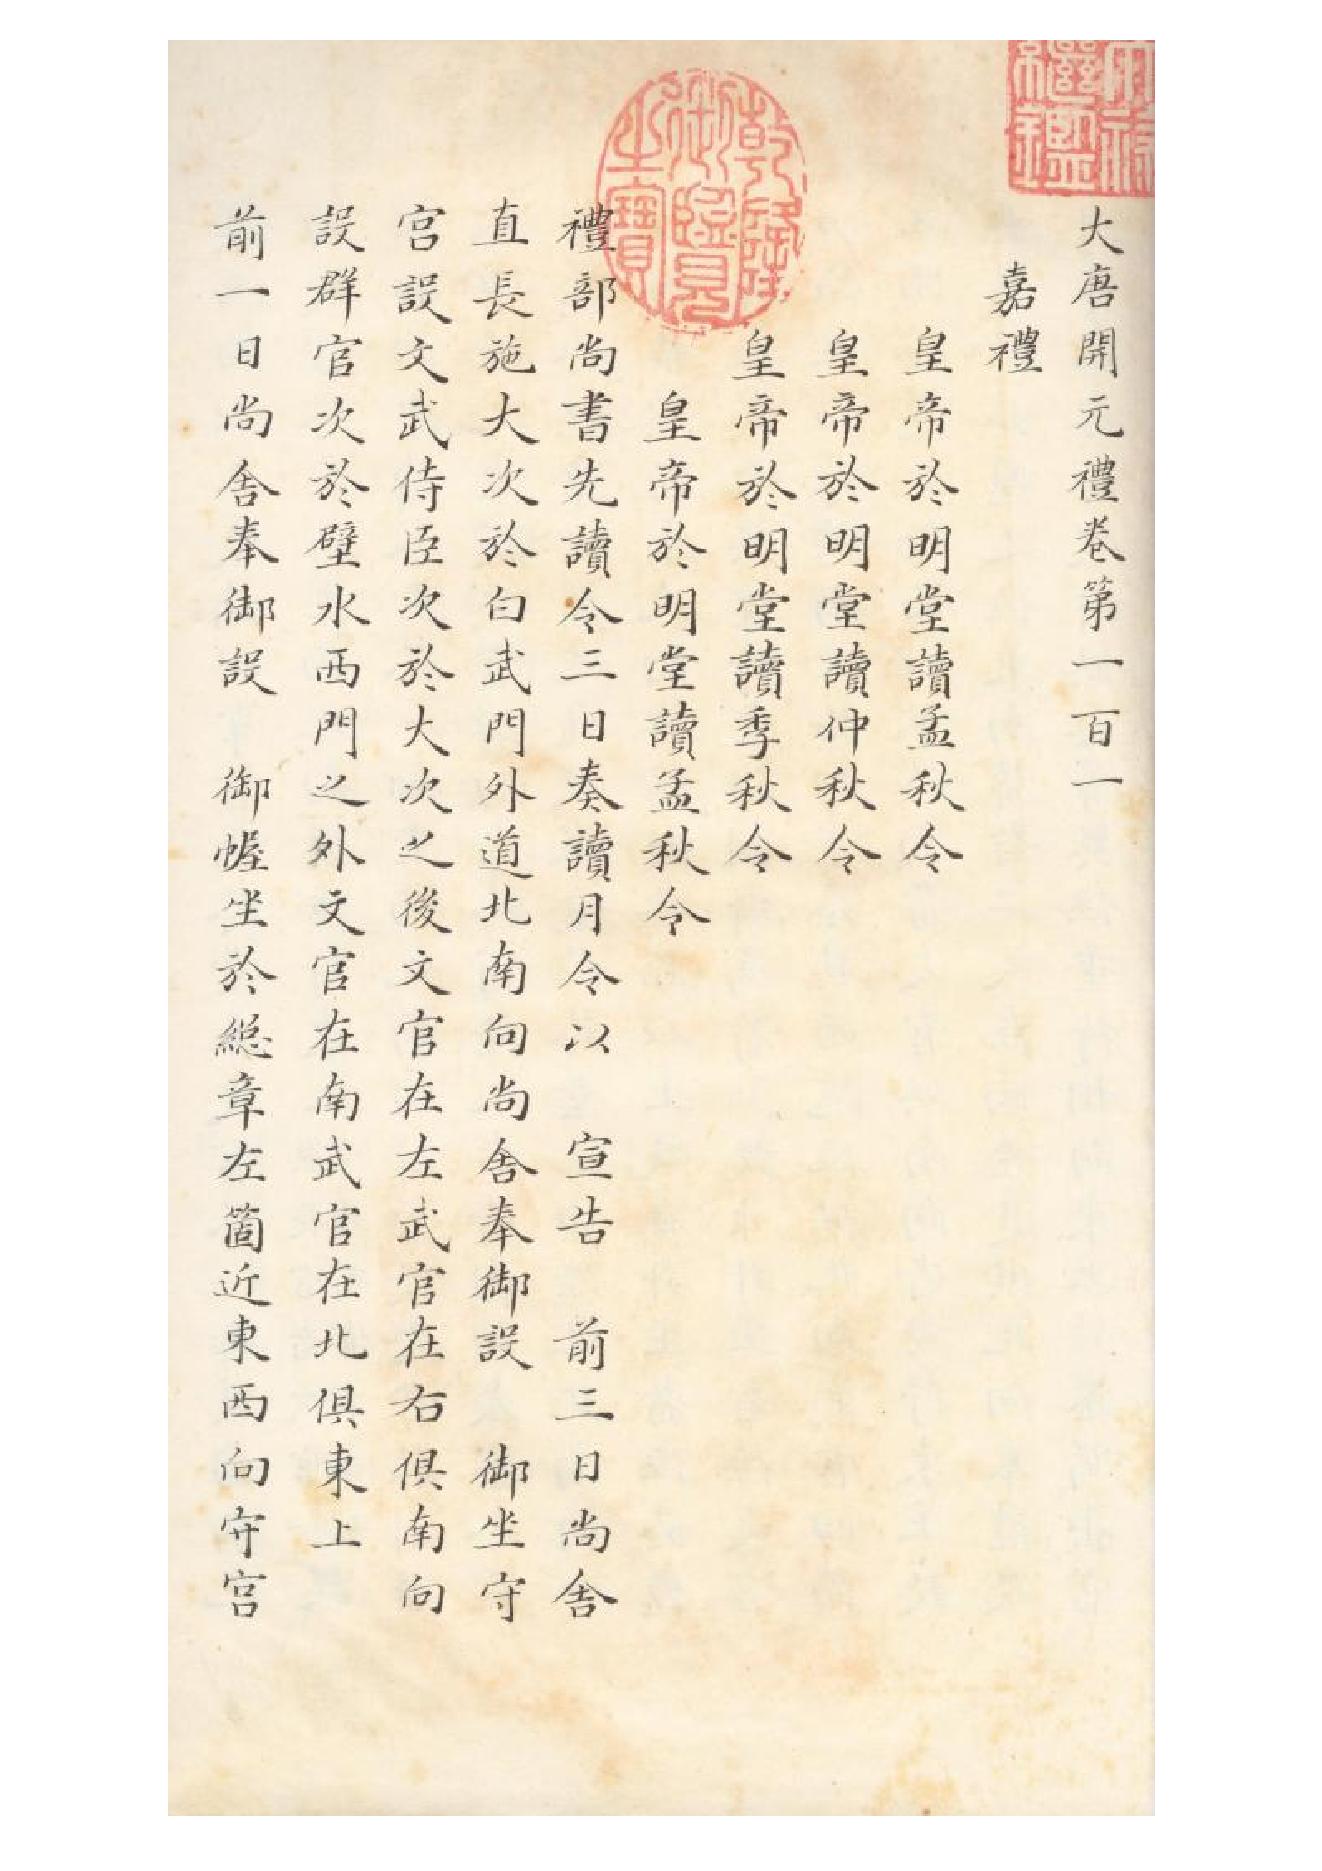 大唐開元禮卷第一百一
嘉禮
皇帝於明堂讀孟秋令
皇帝於明堂讀仲秋令
皇帝於明堂讀季秋令
皇帝於明堂讀孟秋令
禮部尚書先讀令三日奏讀月令以 宣告 前三日尚舍
直長施大次於白武門外道北南向尚舍奉御設 御坐守
宮設文武侍臣次於大次之後文官在左武官在右俱南向
設群官次於壁水西門之外文官在南武官在北俱東上
前一日尚舍奉御設 御幄坐於總章左箇近東西向守宮
乾隆御覽之寶